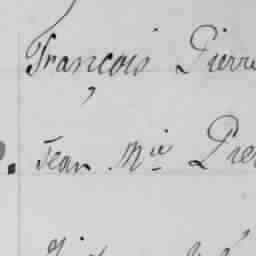 François Pierre
Jean Mie Pier